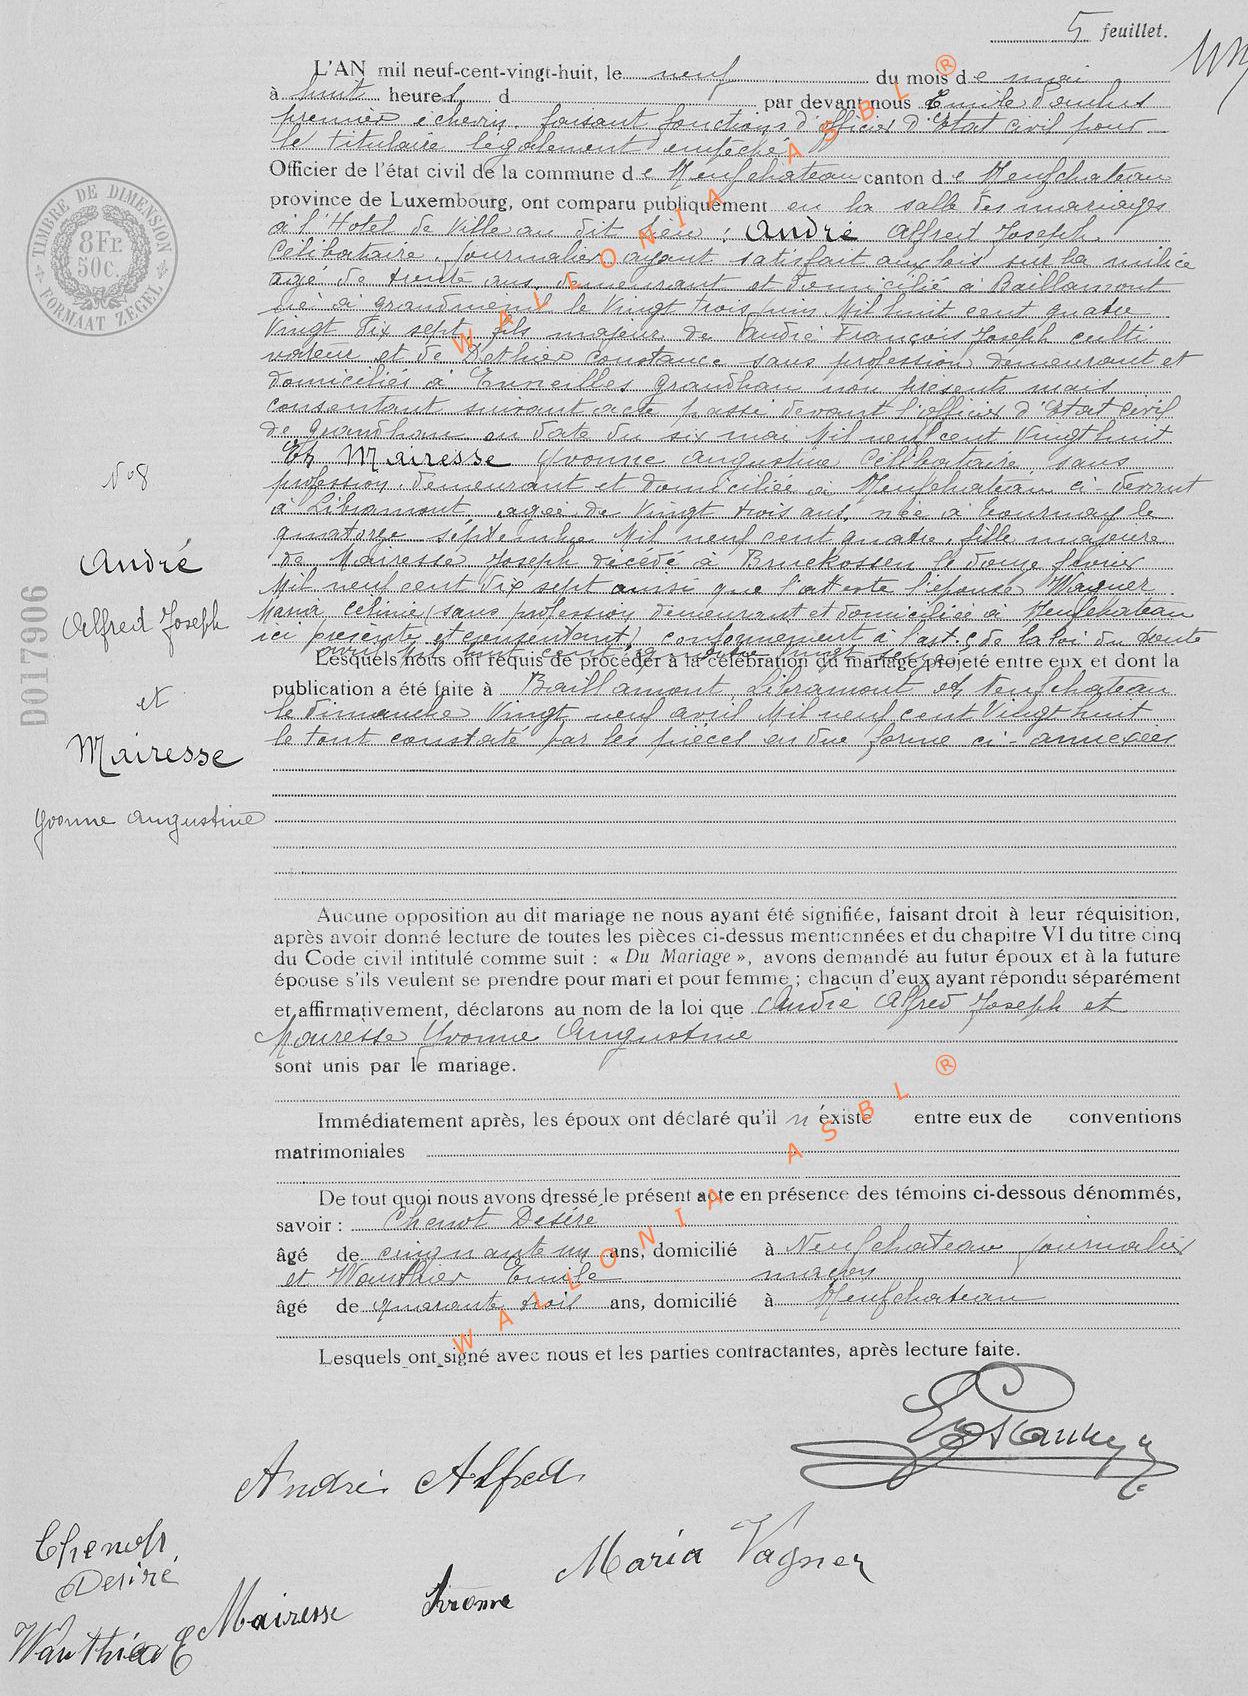 5 feuillet.
L'AN mil neuf-cent-vingt-huit, le neuf du mois de mai
à huit heures d par devant nous Emile Paulus
premier echevin, faisant fonctions d'officier d'Etat civil pour
le titulaire légalement empêché
Officier de l'état civil de la commune de Neufchateau canton de Neufchateau
province de Luxembourg, ont comparu publiquement en la salle des mariages
à l'Hotel de Ville au dit lieu : André Alfred Joseph,
célibataire, journalier ayant satisfait aux lois sur la milice
agé de trente ans, demeurant et domicilié à Baillamont
né à grandmenil le vingt trois juin Mil huit cent quatre
vingt dix sept fils majeur de André François Joseph culti
vateur et de Dethier Constance sans profession demeurant et
domiciliés à Enneilles grandhan non présents mais
consentant suivant acte passé devant l'officier d'Etat civil
de grandhan en date du six mai Mil neuf cent vingt huit
Et Mairesse Yvonne Augustine célibataire, sans
profession, demeurant et domiciliée à Neufchateau ci-devant
à Libramont, agée de vingt trois ans, née à Tournay le
quatorze septembre Mil neuf cent quatre, fille majeure
de Mairesse Joseph décédé à Bruckossen le douze février
Mil neuf cent dix sept ainsi que l'atteste l'épouse Wagner
Maria Celinie (sans profession demeurant et domiciliée à Neufchateau
ici présente et consentant) conformément à l'art. 5 de la loi du trente
avril Mil huit cent quatre vingt seize
Lesquels nous ont requis de procéder à la célébration du mariage projeté entre eux et dont la
publication a été faite à Baillamont, Libramont et Neufchateau
le dimanche vingt neuf avril Mil neuf cent vingt huit
le tout constaté par les pièces en due forme ci-annexées
TIMBRE DE DIMENSION
8 Fr.
50c.
FORMAAT ZEGEL
D017906
N° 8
André
Alfred Joseph
et
Mairesse
Yvonne Augustine
Aucune opposition au dit mariage ne nous ayant été signifiée, faisant droit à leur réquisition,
après avoir donné lecture de toutes les pièces ci-dessus mentionnées et du chapitre VI du titre cinq
du Code civil intitulé comme suit : « Du Mariage », avons demandé au futur époux et à la future
épouse s'ils veulent se prendre pour mari et pour femme ; chacun d'eux ayant répondu séparément
et affirmativement, déclarons au nom de la loi que André Alfred Joseph et
Mairesse Yvonne Augustine
sont unis par le mariage.
Immédiatement après, les époux ont déclaré qu'il n'existe entre eux de conventions
matrimoniales
De tout quoi nous avons dressé le présent acte en présence des témoins ci-dessous dénommés,
savoir : Chenot Désiré
âgé de cinquante un ans, domicilié à Neufchateau journalier
et Wauthier Emile maçon
âgé de quarante trois ans, domicilié à Neufchateau
Lesquels ont signé avec nous et les parties contractantes, après lecture faite.
André Alfred
Chenot
Desiré
Maria Vagner
Mairesse Yvonne
Wauthier E
WALLONIA ASBL ®
WALLONIA ASBL ®